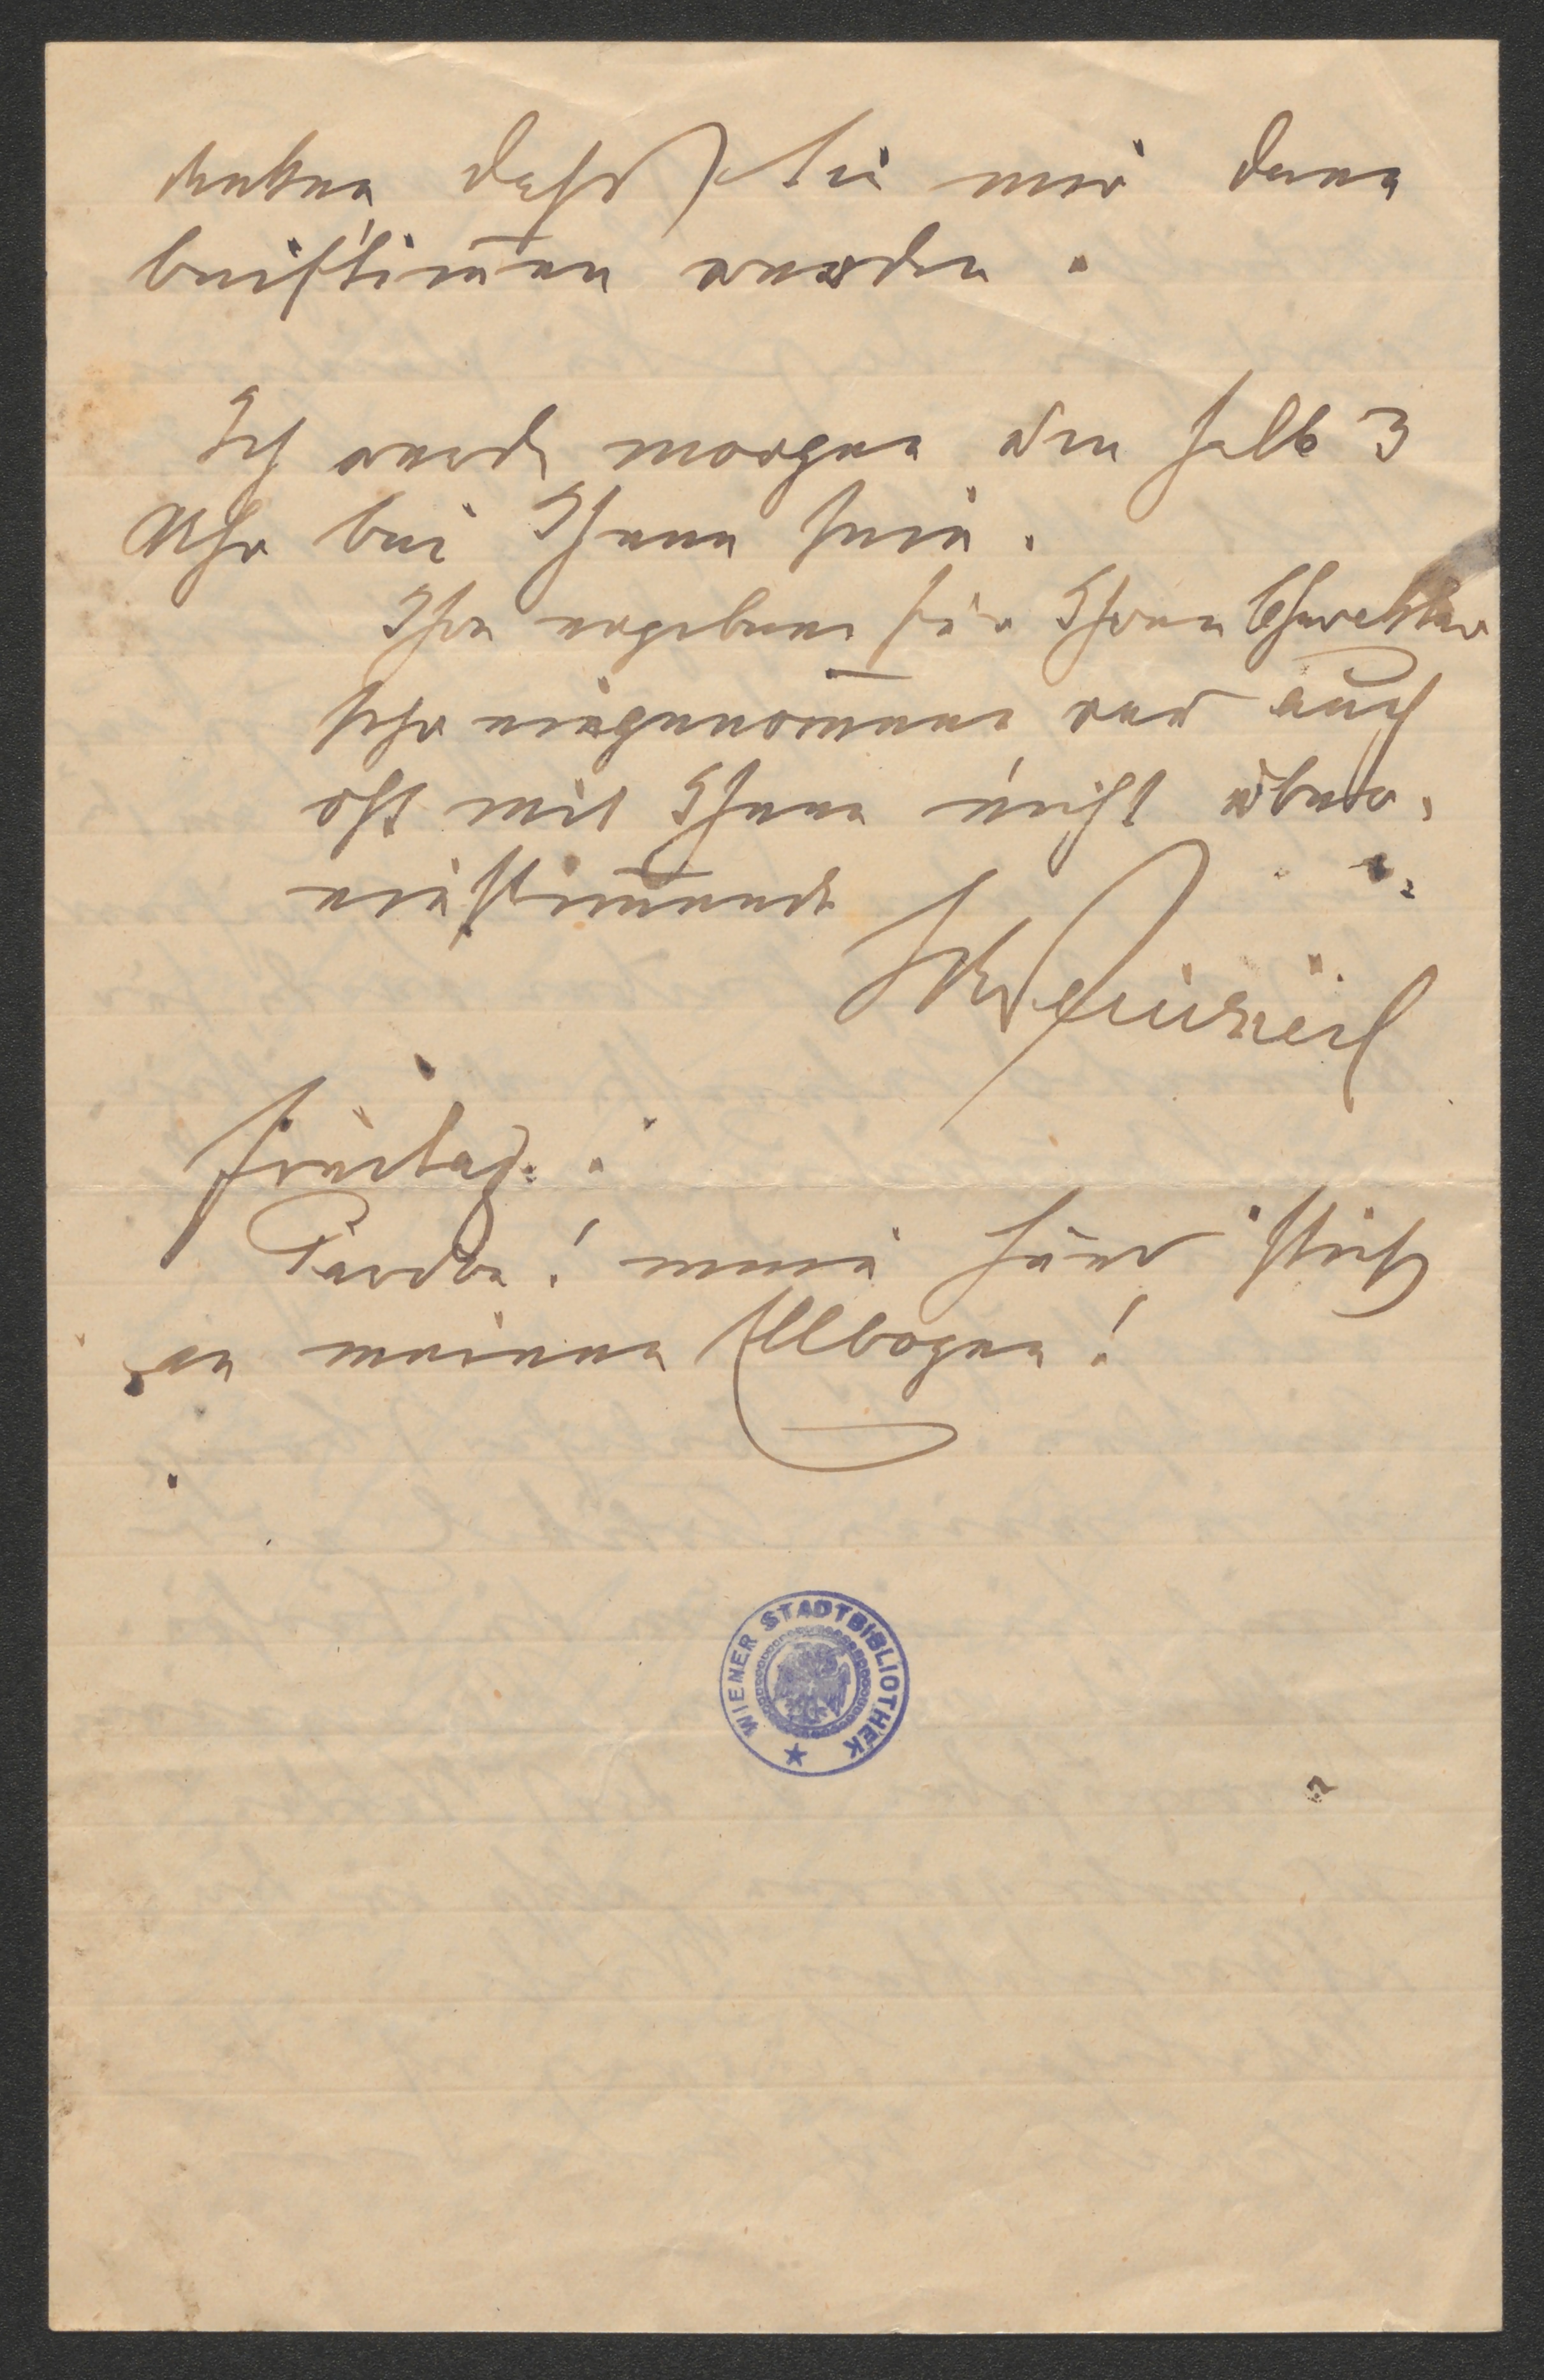 denken, daß Sie mir dann
beistim̄en werden.
Ich werde morgen um halb 3
Uhr bei Ihnen sein.
Ihr ergebener für Ihren Charakter
sehr eingenom̄ener und auch
oft mit Ihnen nicht über-
einstim̄ender
Freitag.
Pardon! mein Hund stieß
an meinen Ellbogen!
WIENER STADTBIBLIOTHEK